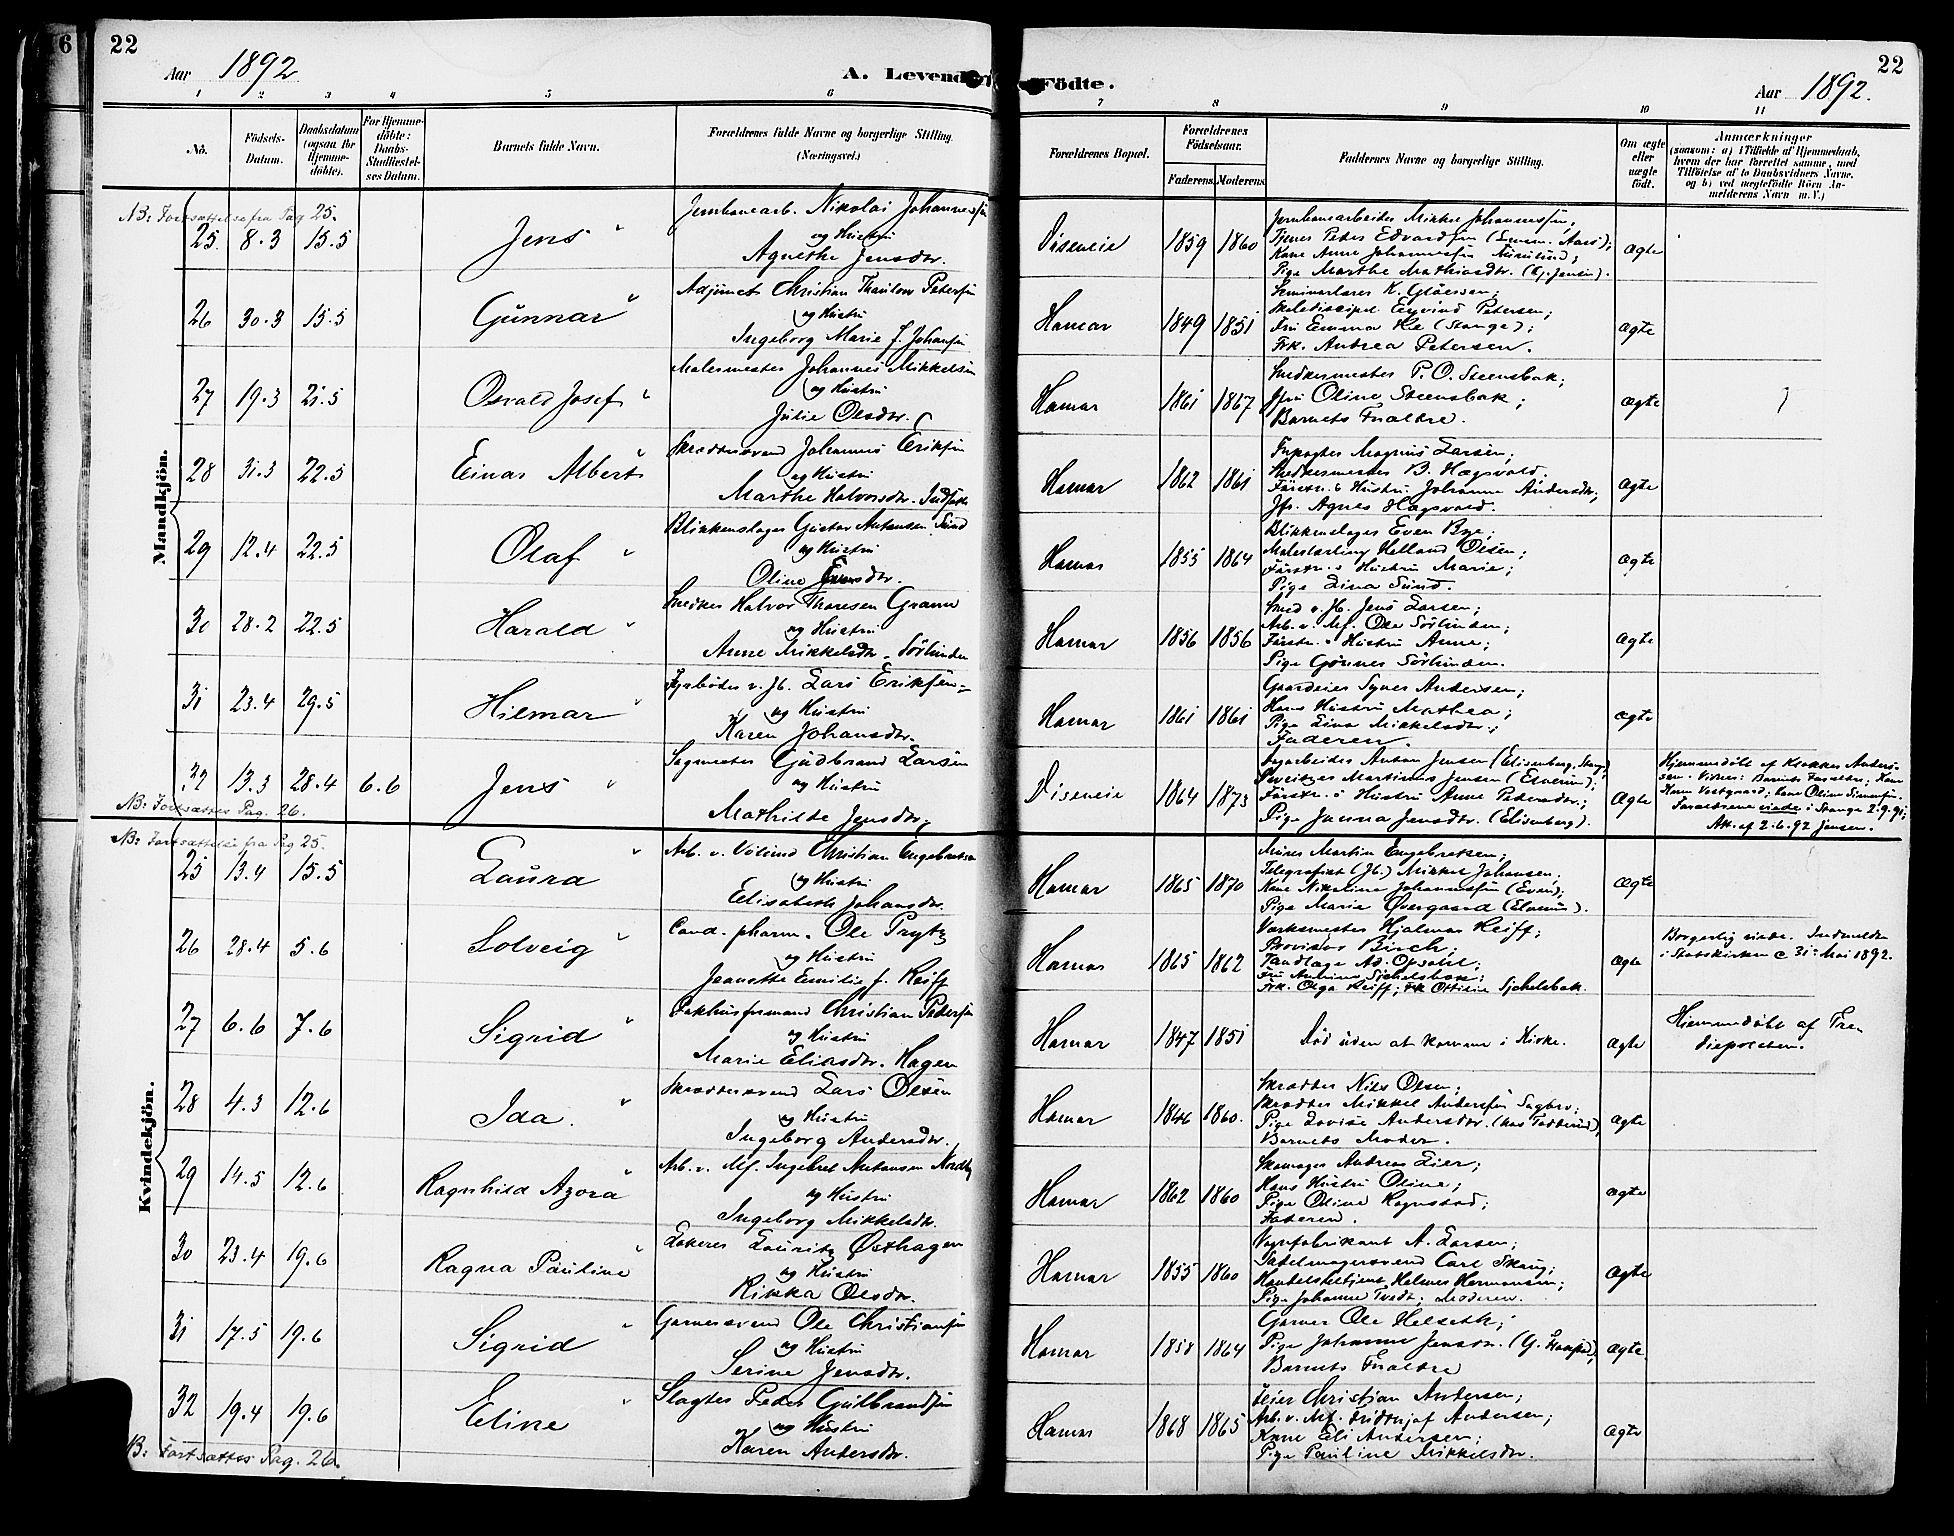 22
Aar 1892
A. Levende Födte.
22
Aar 1892.
1 2 3 4 5 6 7 8 9 10 11
No. Födsels-Datum. Daabsdatum (ogsaa for Hjemme-döbte). For Hjemme-döbte: Daabs-Stadfæstel-ses Datum. Barnets fulde Navn. Forældrenes fulde Navne og borgerlige Stilling. (Næringsvei.) Forældrenes Bopæl. Forældrenes Födselsaar. Faderens. Moderens. Faddernes Navne og borgerlige Stilling. Om ægte eller uægte födt. Anmærkninger (saasom: a) i Tilfælde af Hjemmedaab, hvem der har forrettet samme, med Tilföielse af to Daabsvidners Navne, og b) ved uægtefödte Börn An-melderens Navn m. V.)
Mandkjön.
NB: Fortsættelse fra Pag 25.
25. 8.3 15.5 Jens
Jernbanearb. Nikolai Johannessen
og Hustru
Agnethe Jensdtr.
Diseneie 1859 1860
Jernbanearbeider Mikkel Johannessen;
Tjener Peder Edvardsen
Kone Anne Johannessen
Pige Marthe Mathiasdtr.
ægte
26 30.3 15.5 Gunnar
Adjunct Christian Thaulow Petersen
og Hustru
Ingeborg Marie f. Johansen
Hamar 1849 1851
Seminarlærer K. Gløersen;
Skolediscipel Eyvind Petersen;
Fru Emma He (Stange);
Frk. Andrea Petersen.
ægte
27 19.3 21.5 Osvald Josef
Malermester Johannes Mikkelsen
og Hustru
Julie Olsdtr.
Hamar 1861 1867
Snedkermester P. O. Steensbak;
Oline Steensbak;
Barnets Forældre.
ægte
28 31.3 22.5 Einar Albert
Skræddersvend Johannes Eriksen
og Hustru
Marthe Halvorsdtr.
Hamar 1862 1861
Magnus Larsen;
Snedkermester B. Hagsvold;
Førstn.s Hustru Johanne Andersdtr;
Jfr. Agnes Hagsvold.
ægte
29 12.4 22.5 Olaf
Blikkenslager Gustav Antonsen Sund
og Hustru
Oline Evensdtr.
Hamar 1855 1864
Blikkenslager Even Bye;
Malerlærling Helland Olsen;
Førstn.s Hustru Marie;
Pige Lina Sund.
ægte
30 28.2 22.5 Harald
Snedker Halvor Thoresen Gramm
og Hustru
Anne Mikkelsdtr. Sørlunden
Hamar 1856 1856
Smed v. Jb. Jens Larsen;
Arb. v. Mf. Ole Sørlunden;
Førstn.s Hustru Anne;
Pige Gønner Sørlunden.
ægte
31 23.4 29.5 Hilmar
Fyrbøder v. Jb. Lars Eriksen
og Hustru
Karen Johansdtr.
Hamar 1861 1861
Gaardeier Syver Andersen;
Hans Hustru Mathea;
Pige Lina Mikkelsdtr.;
Faderen.
ægte
32 13.3 28.4 6.6 Jens
Sagmester Gudbrand Larsen
og Hustru
Mathilde Jensdtr.
Diseneie 1864 1873
Anton Jensen (Elisenberg, Stange)
Martinus Jensen (Elverum);
Førstn.s Hustru Anne Pedersdtr.;
Pige Janna Jensdtr. (Elisenberg).
ægte
Hjemmedøbt af Klokker Anders-
sen. Vidner: Barnets Forældre; Kone
Karen Vestgaard; Kone Oline Simensen.
Forældrene viede i Stange 2.9.91;
Att. af 2.6.92 Jensen.
NB: Fortsættes Pag. 26.
Kvindekjön.
NB: Fortsættelse fra Pag 25.
25 13.4 15.5 Laura
Arb. v. Vølund Christian Engebretsen
og Hustru
Elisabeth Johansdtr.
Hamar 1865 1870
Murer Martin Engebretsen;
Telegrafist (Jb.) Mikkel Johansen;
Kone Nikoline Johannessen
Pige Marie Øvergaard (Elverum).
ægte
26 28.4 5.6 Solveig
Cand. pharm. Ole Prytz
og Hustru
Jeanette Emilie f. Reiff
Hamar 1865 1862
Værksmester Hjalmar Reiff;
Provisor Birch;
Tandlæge Ad. Opsahl;
Fru Sjehelsbak;
Frk. Olga Reiff; Frk Ottilie Sjehelsbak.
ægte
Borgerlig viede. Indmeldte
i Statskirken c 31 Mai 1892.
27 6.6 7.6 Sigrid
Pakhusformand Christian Pedersen
og Hustru
Marie Eliasdtr. Hagen
Hamar 1847 1851
Død uden at komme i Kirke.
ægte
Hjemmedøbt af Præ-
28 4.3 12.6 Ida.
Skræddersvend Lars Olsen
og Hustru
Ingeborg Andersdtr.
Hamar 1846 1860.
Skrædder Nils Olsen;
Skrædder Mikkel Andersen Sagbro;
Pige Lovise Andersdtr.
Barnets Moder.
ægte
29 14.5 12.6 Ragnhild Azora
Arb. v. Mf. Ingebret Antonsen Nordby
og Hustru
Ingeborg Mikkelsdtr.
Hamar 1862 1860
Skomager Andreas Lier;
Hans Hustru Oline;
Pige Oline Rognstad;
Faderen.
ægte
30 23.4 19.6 Ragna Pauline
Lakerer Lauritz Østhagen
og Hustru
Rikka Olsdtr.
Hamar 1855 1860
Vognfabrikant A. Larsen;
Sadelmagersvend Carl Skaug;
Handelsbetjent Helmer Hermansen;
Pige Johanne Tvedt; Moderen.
ægte
31 17.5 19.6 Sigrid
Garversvend Ole Christiansen
og Hustru
Serine Jensdtr.
Hamar 1858 1864
Garver Ole Helseth;
Pige Johanne Jensdtr.
Barnets Forældre
ægte.
32 19.4 19.6 Eline
Slagter Peder Gulbrandsen
og Hustru
Karen Andersdtr.
Hamar 1868 1865
Leier Christian Andersen;
Arb. v. Mf. Fridtjof Andersen;
Kone Eli Andersen;
Pige Pauline Mikkelsdtr.
ægte
B: Fortsættes Pag. 26.